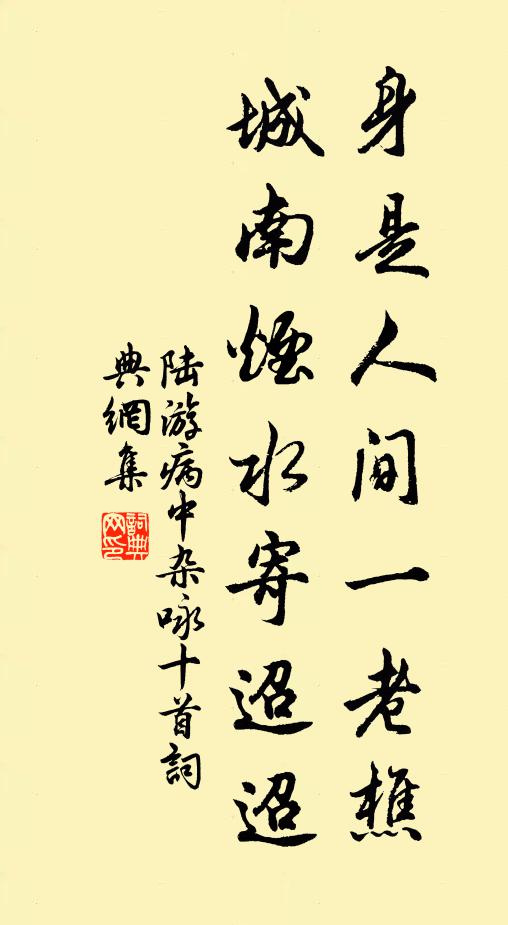 身是人间一老樵
城南煙水寄迢迢
陆游病中杂咏十首詞
典網集
詞典
网印